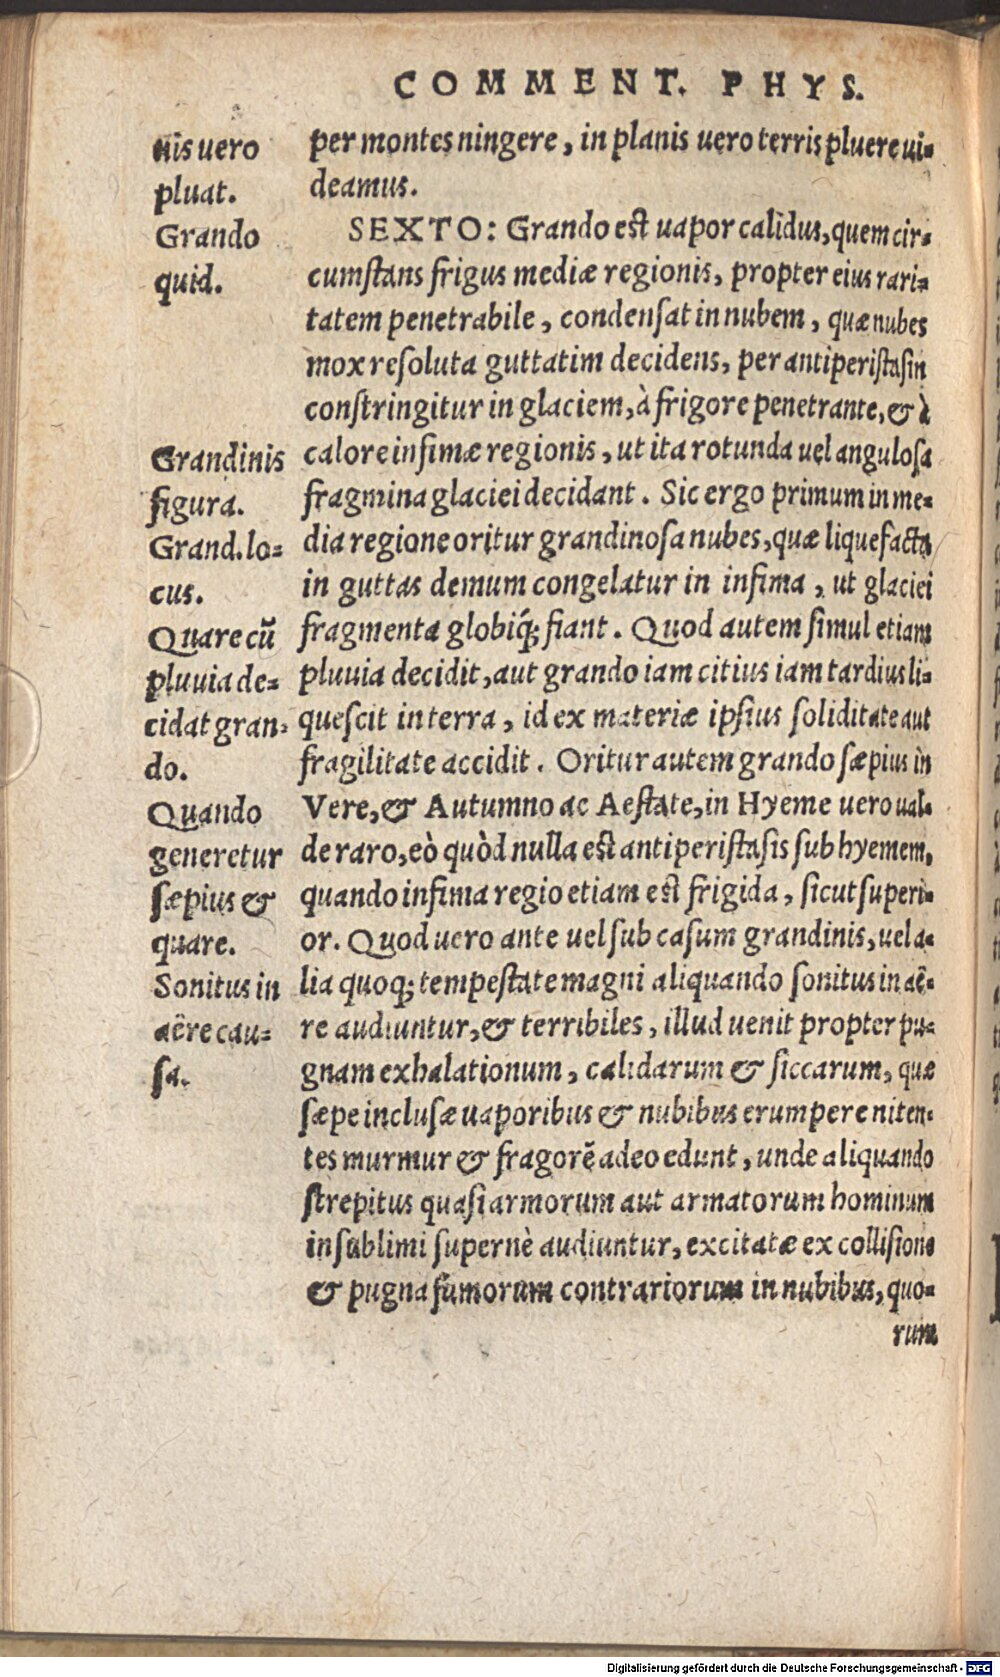 COMMENT. PHYS.
nis uero
pluat.
Grando
quid.
Grandinis
figura.
Grand. lo-
cus.
Quare cũ
pluuia de-
cidat gran-
do.
Quando
generetur
sæpius &
quare.
Sonitus in
aëre cau-
sa.
per montes ningere, in planis uero terris pluere ui-
deamus.
SEXTO: Grando est uapor calidus, quem cir-
cumstans frigus mediæ regionis, propter eius rari-
tatem penetrabile, condensat in nubem, quæ nubes
mox resoluta guttatim decidens, per antiperistasin
constringitur in glaciem, à frigore penetrante, & à
calore infimæ regionis, ut ita rotunda uel angulosa
fragmina glaciei decidant. Sic ergo primum in me-
dia regione oritur grandinosa nubes, quæ liquefacta
in guttas demum congelatur in infima, ut glaciei
fragmenta globiq́; fiant. Quod autem simul etiam
pluuia decidit, aut grando iam citius iam tardius li-
quescit in terra, id ex materiæ ipsius soliditate aut
fragilitate accidit. Oritur autem grando sæpius in
Vere, & Autumno ac Aestate, in Hyeme uero ual-
de raro, eò quòd nulla est antiperistasis sub hyemem,
quando infima regio etiam est frigida, sicut superi-
or. Quod uero ante uel sub casum grandinis, uel a-
lia quoq; tempestate magni aliquando sonitus in aë-
re audiuntur, & terribiles, illud uenit propter pu-
gnam exhalationum, calidarum & siccarum, quæ
sæpe inclusæ uaporibus & nubibus erumpere niten-
tes murmur & fragorẽ adeo edunt, unde aliquando
strepitus quasi armorum aut armatorum hominum
in sublimi supernè audiuntur, excitatæ ex collisione
& pugna fumorum contrariorum in nubibus, quo-
rum
Digitalisierung gefördert durch die Deutsche Forschungsgemeinschaft - DFG